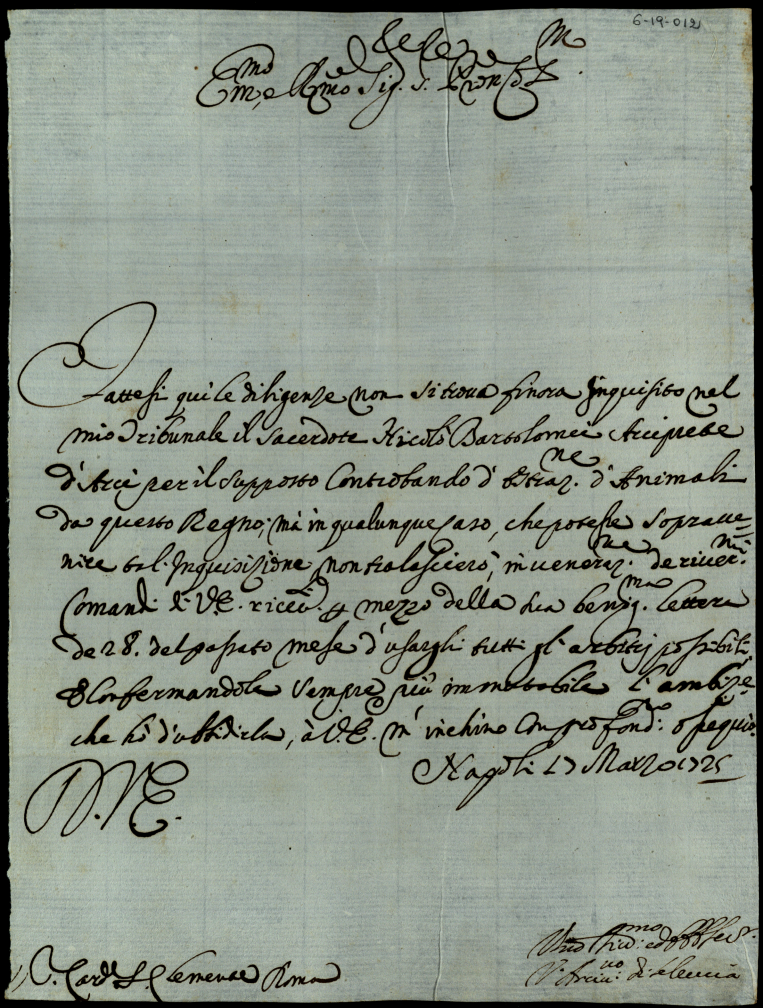 6-19-012
Em.mo e R.mo Sig.
Fattesi quì le diligenze non si trova finora Inquisito nel
mio Tribunale il Sacerdote Nicolò Bartolomei Arciprete
d'Arci per il supposto Controbando d'Estraz.ne d'Animali
da questo Regno; mà in qualunque caso, che potesse soprave=
nire tal Inquisizione, non tralascierò, in veneraz.ne de river.mi
Comandi di V.E. ricev. p mezzo della sua benig.ma lettera
de 28. del passato mese d'usargli tutti gl'arbitrj possibili,
E Confermandole sempre più immutabile l'ambiz.e
che hò d'ubbidirla, à V.E. m'inchino Con profond.mo ossequio.
Napoli 17 Marzo 1725
D.V.E.
Card. S. Clemente Roma